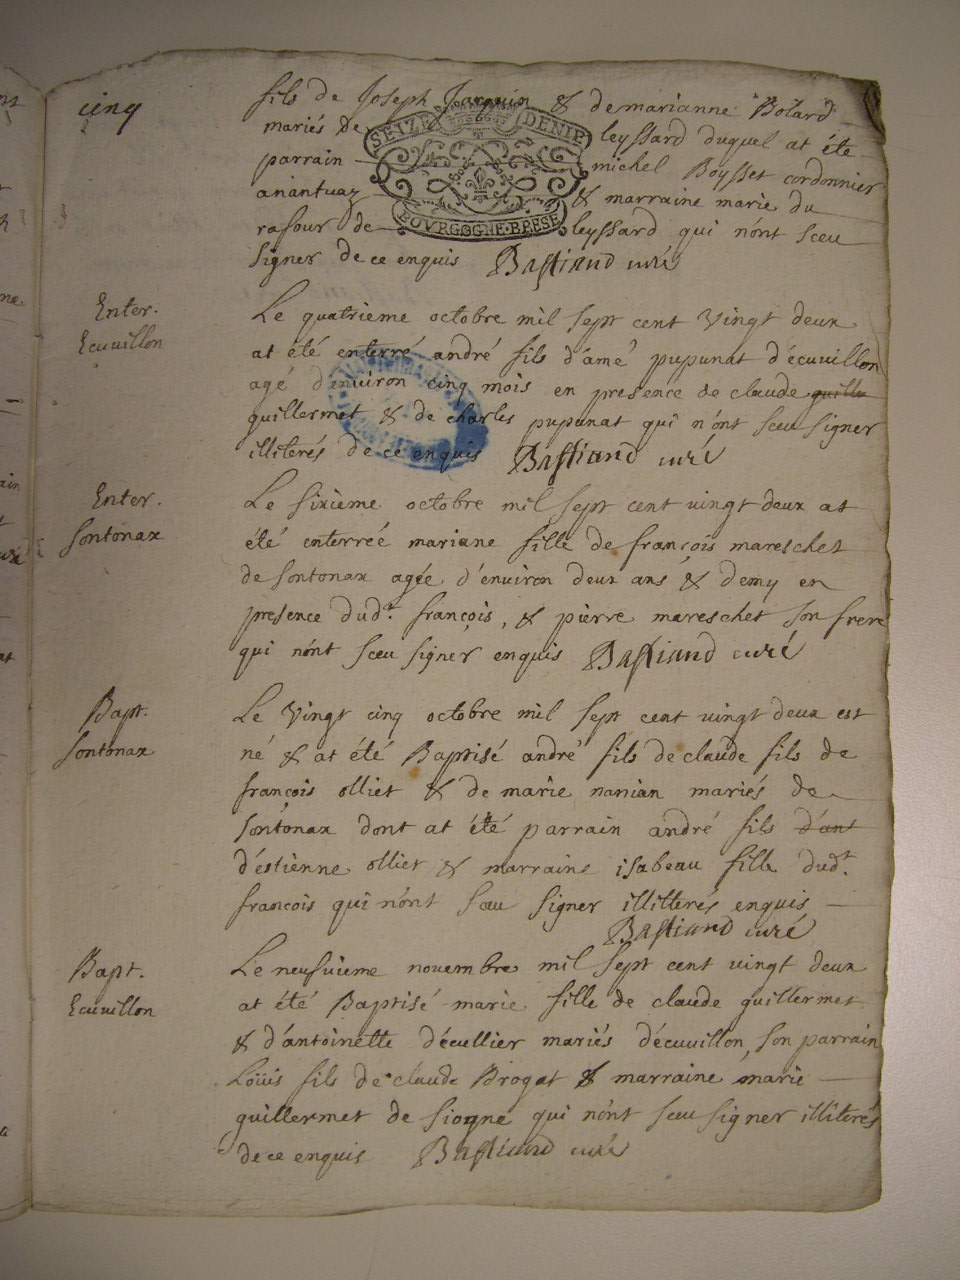 cinq
fils de Joseph Jarquin & de marianne Bolard
mariés de leyssard duquel at été
parrain michel Boysset cordonnier
anantuaz & marraine marie du
rafour de leyssard qui nónt sceu
signer de ce enquis Bastiand curé
SEIZE DENIE
BOVRGOGNE·BRESE
Enter.
Ecuvillon
Le quatrieme octobre mil sept cent Vingt deux
at été enterré andré fils d'amé pupunat d'écuvillon
agé d'environ cinq mois en presence de claude guille
guillermet & de charles pupunat qui n'ónt sceu signer
illiterés de ce enquis Bastiand curé
Enter.
Sontonax
Le sixieme octobre mil sept cent vingt deux at
été enterreé mariane fille de françois mareschet
de sontonax agée d'environ deux ans & demy en
presence dud.t françois, & pierre mareschet son frere
qui nónt sceu signer enquis Bastiand curé
Bapt.
Sontonax
Le Vingt cinq octobre mil sept cent vingt deux est
né & at été Baptisé andré fils de claude fils de
francois olliet & de marie nanian mariés de
sontonax dont at été parrain andré fils d'ant
d'éstienne olliet & marraine isabeau fille dud.t
francois qui nónt sceu signer illitterés enquis
Bastiand curé
Bapt.
Ecuvillon
Le neufvieme novembre mil sept cent vingt deux
at été Baptisé marie fille de claude guillermet
& d'antoinette décullier mariés d'écuvillon, son parrain
Loüis fils de claude Brogat & marraine marie
guillermet de siogne qui nónt sceu signer illiterés
de ce enquis Bastiand curé